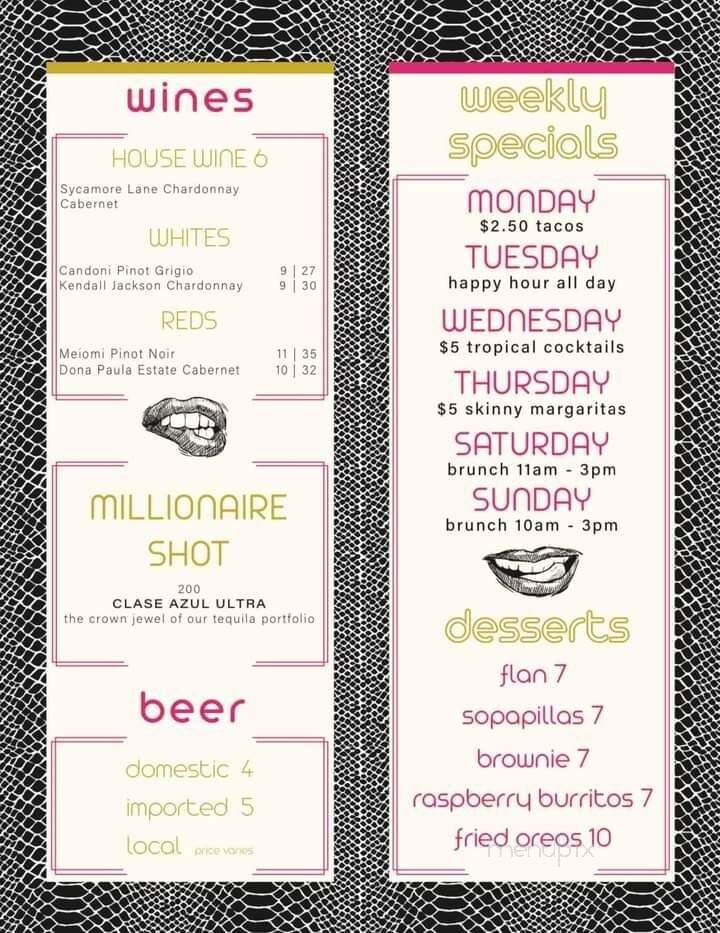 wines
HOUSE WINE 6
Sycamore Lane Chardonnay
Cabernet
WHITES
Candoni Pinot Grigio 9 | 27
Kendall Jackson Chardonnay 9 | 30
REDS
Meiomi Pinot Noir 11 | 35
Dona Paula Estate Cabernet 10 | 32
MILLIONAIRE
SHOT
200
CLASE AZUL ULTRA
the crown jewel of our tequila portfolio
beer
domestic 4
imported 5
local price varies
weekly
specials
MONDAY
$2.50 tacos
TUESDAY
happy hour all day
WEDNESDAY
$5 tropical cocktails
THURSDAY
$5 skinny margaritas
SATURDAY
brunch 11am - 3pm
SUNDAY
brunch 10am - 3pm
desserts
flan 7
sopapillas 7
brownie 7
raspberry burritos 7
fried oreos 10
menupix